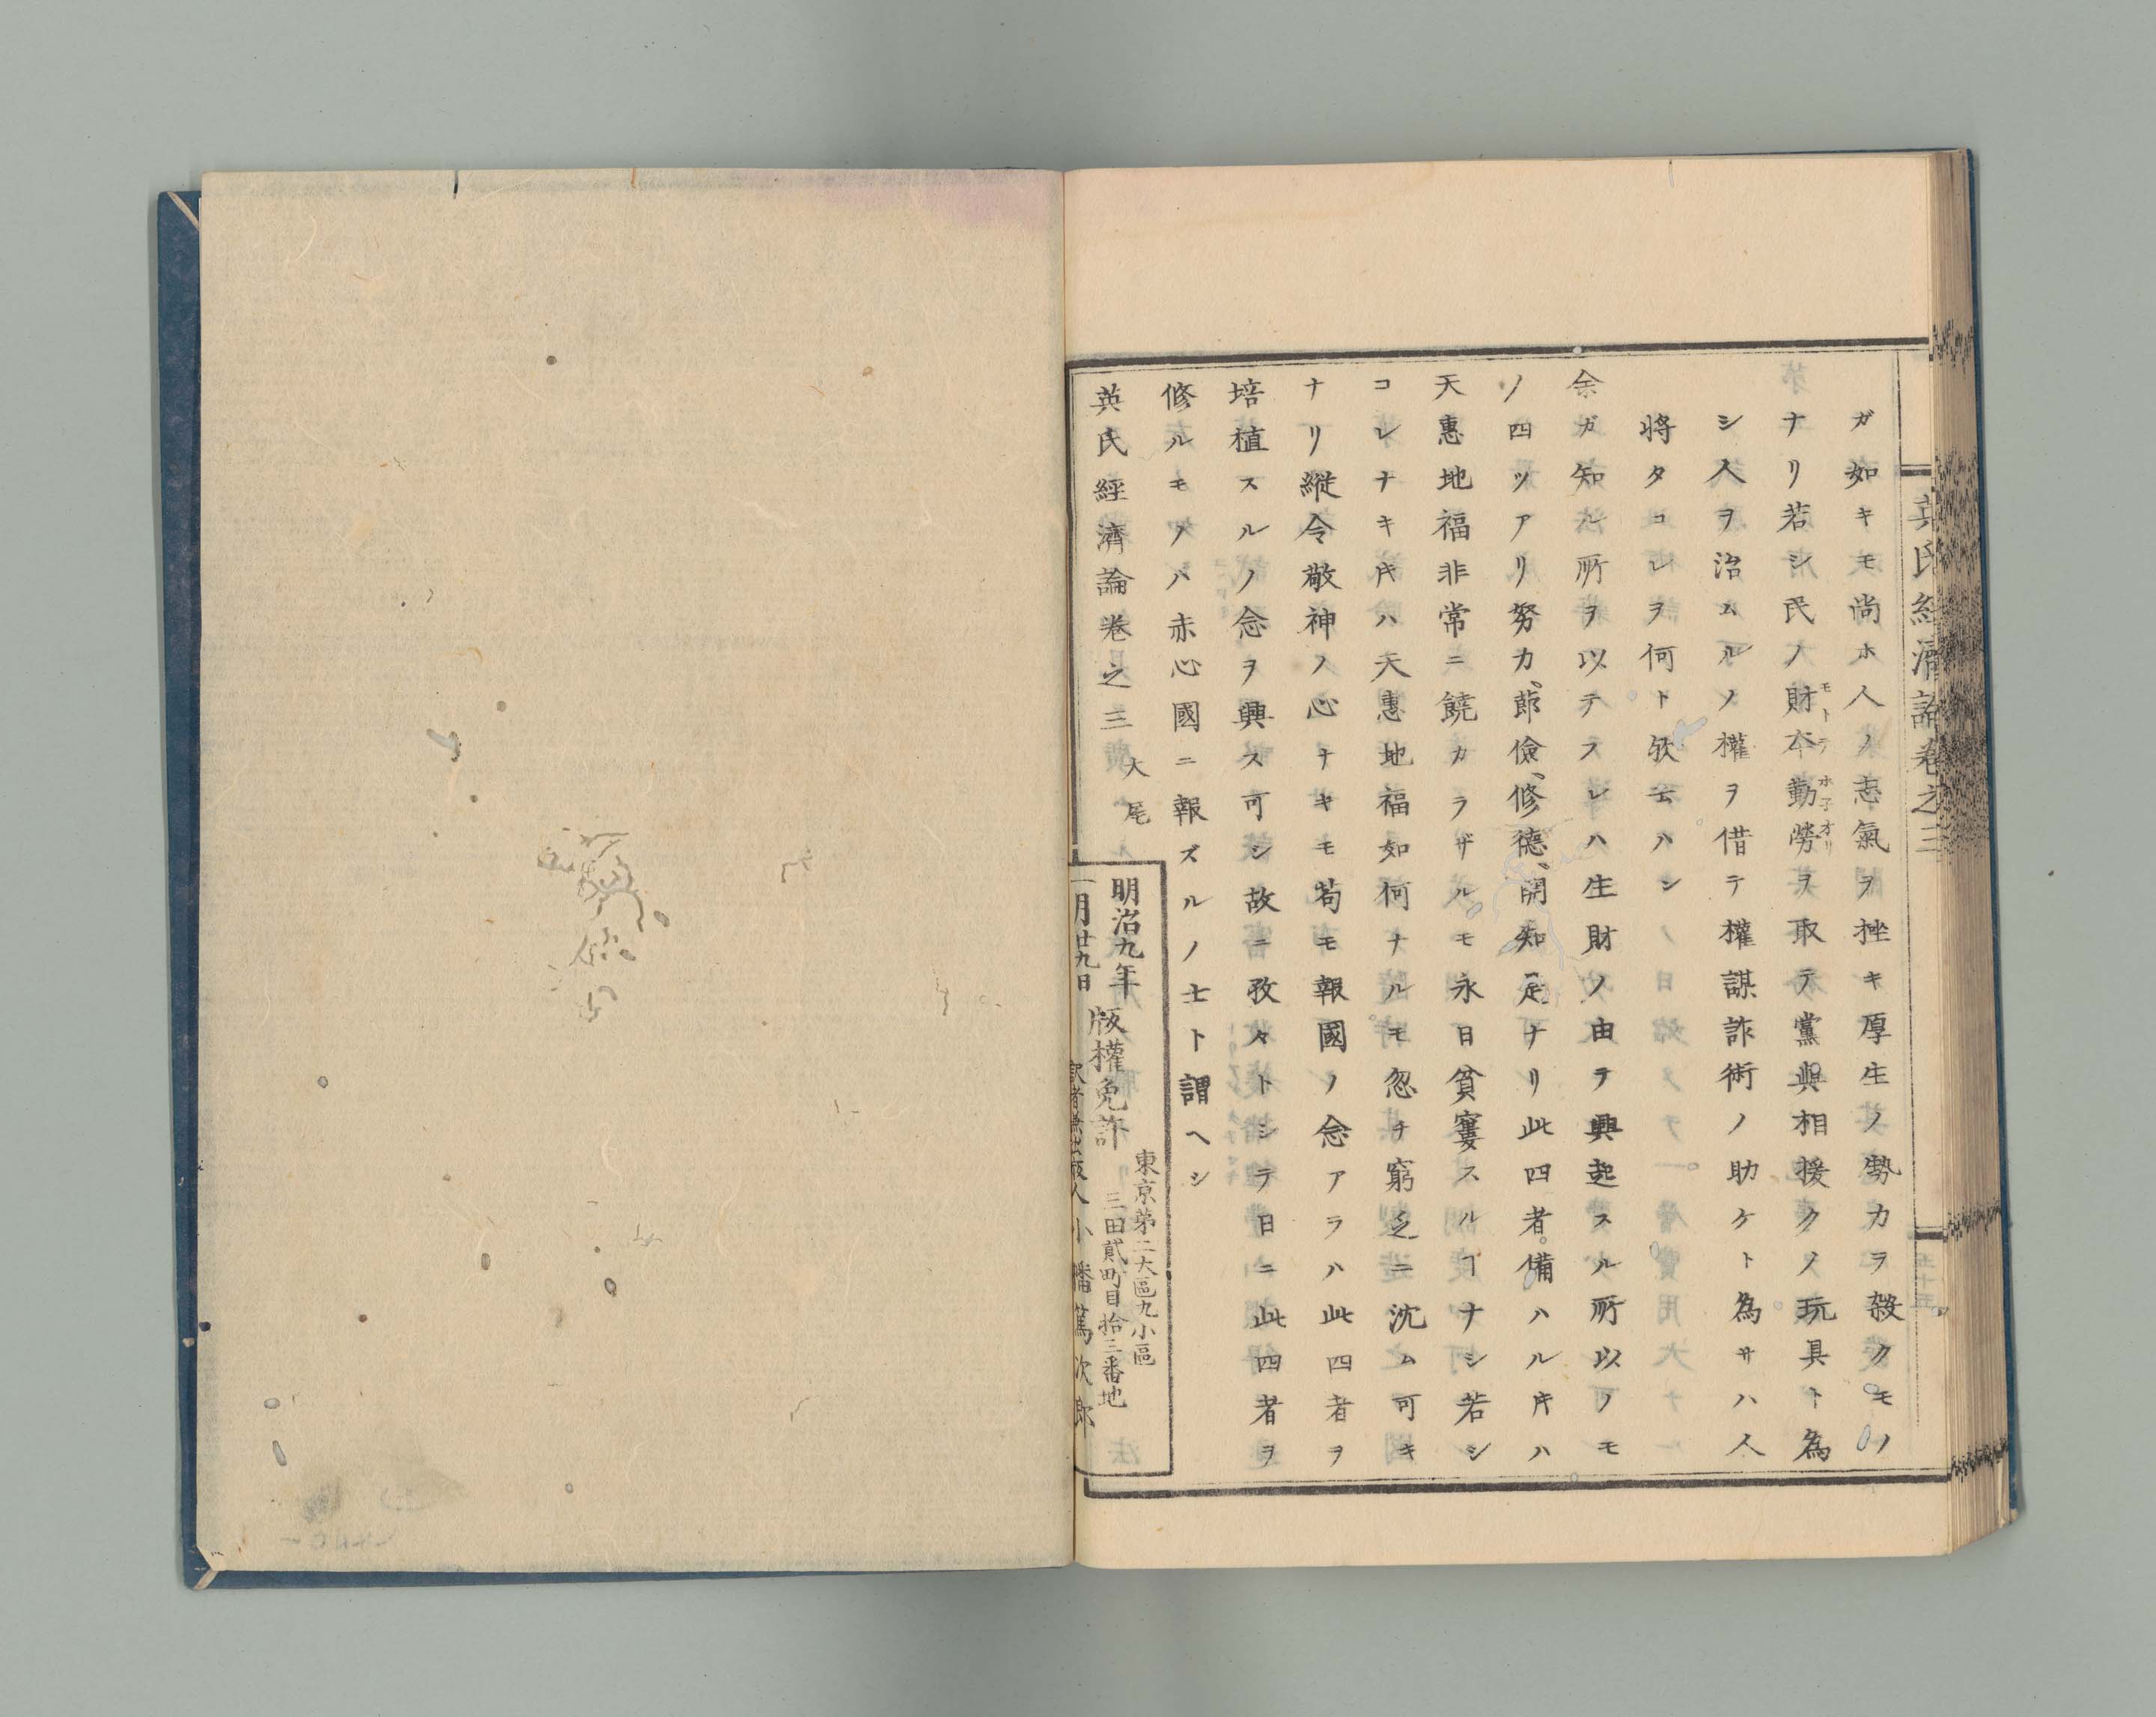 英氏經濟論卷之三
五十五
ガ如キモ尚ホ人ノ志氣ヲ挫キ厚生ノ勢力ヲ殺クモノ
ナリ若シ民ノ財本勤勞ヲ取テ黨與相援クノ玩具ト為
モトデ ホネオリ
シ人ヲ治ムルノ權ヲ借テ權謀詐術ノ助ケト為サハ人
將タコレヲ何ト欤云ハン
余ガ知ル所ヲ以テスレハ生財ノ由テ興起スル所以ノモ
ノ四ツアリ努力、節儉、修德、開知、是ナリ此四者備ハル片ハ
天惠地福非常ニ饒カラザルモ永日貧窶スルヿナシ若シ
コレナキ片ハ天惠地福如何ナルモ忽チ窮乏ニ沈ム可キ
ナリ縱令敬神ノ心ナキモ苟モ報國ノ念アラハ此四者ヲ
培植スルノ念ヲ興ス可シ故ニ孜々トシテ日ニ此四者ヲ
修ルモノハ赤心國ニ報ズルノ士ト謂ヘシ
英氏經濟論卷之三 大尾
明治九年
一月廿九日
版權免許
東京第二大區九小區
三田貳町目拾三番地
訳者兼出版人 小幡篤次郎